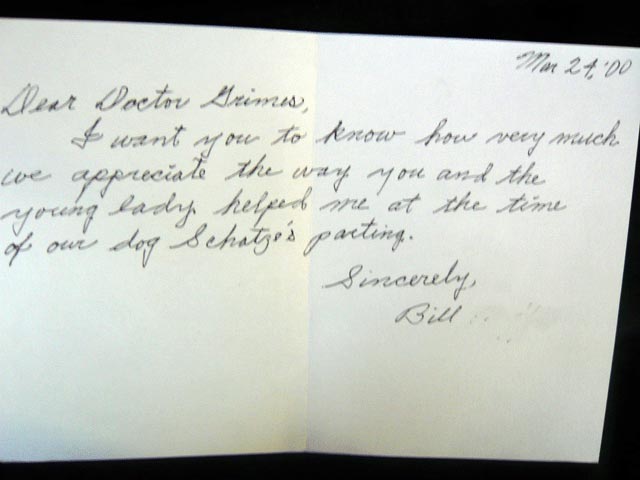 Mar 24, '00
Dear Doctor Grimes,
I want you to know how very much
we appreciate the way you and the
young lady helped me at the time
of our dog Schatze's parting.
Sincerely,
Bill